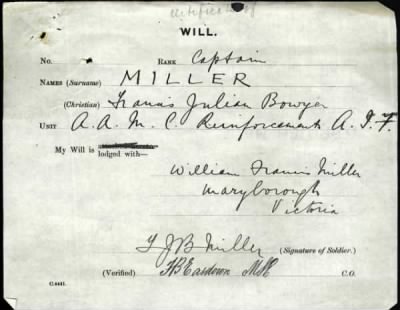 certificate of
WILL.
No. RANK Captain
NAMES (Surname) MILLER
(Christian) Francis Julian Bowyer
UNIT A. A. M. C. Reinforcements A. I. F.
My Will is lodged with—
William Francis Miller
Maryborough
Victoria
F J B Miller (Signature of Soldier.)
(Verified) C.O.
C.4441.